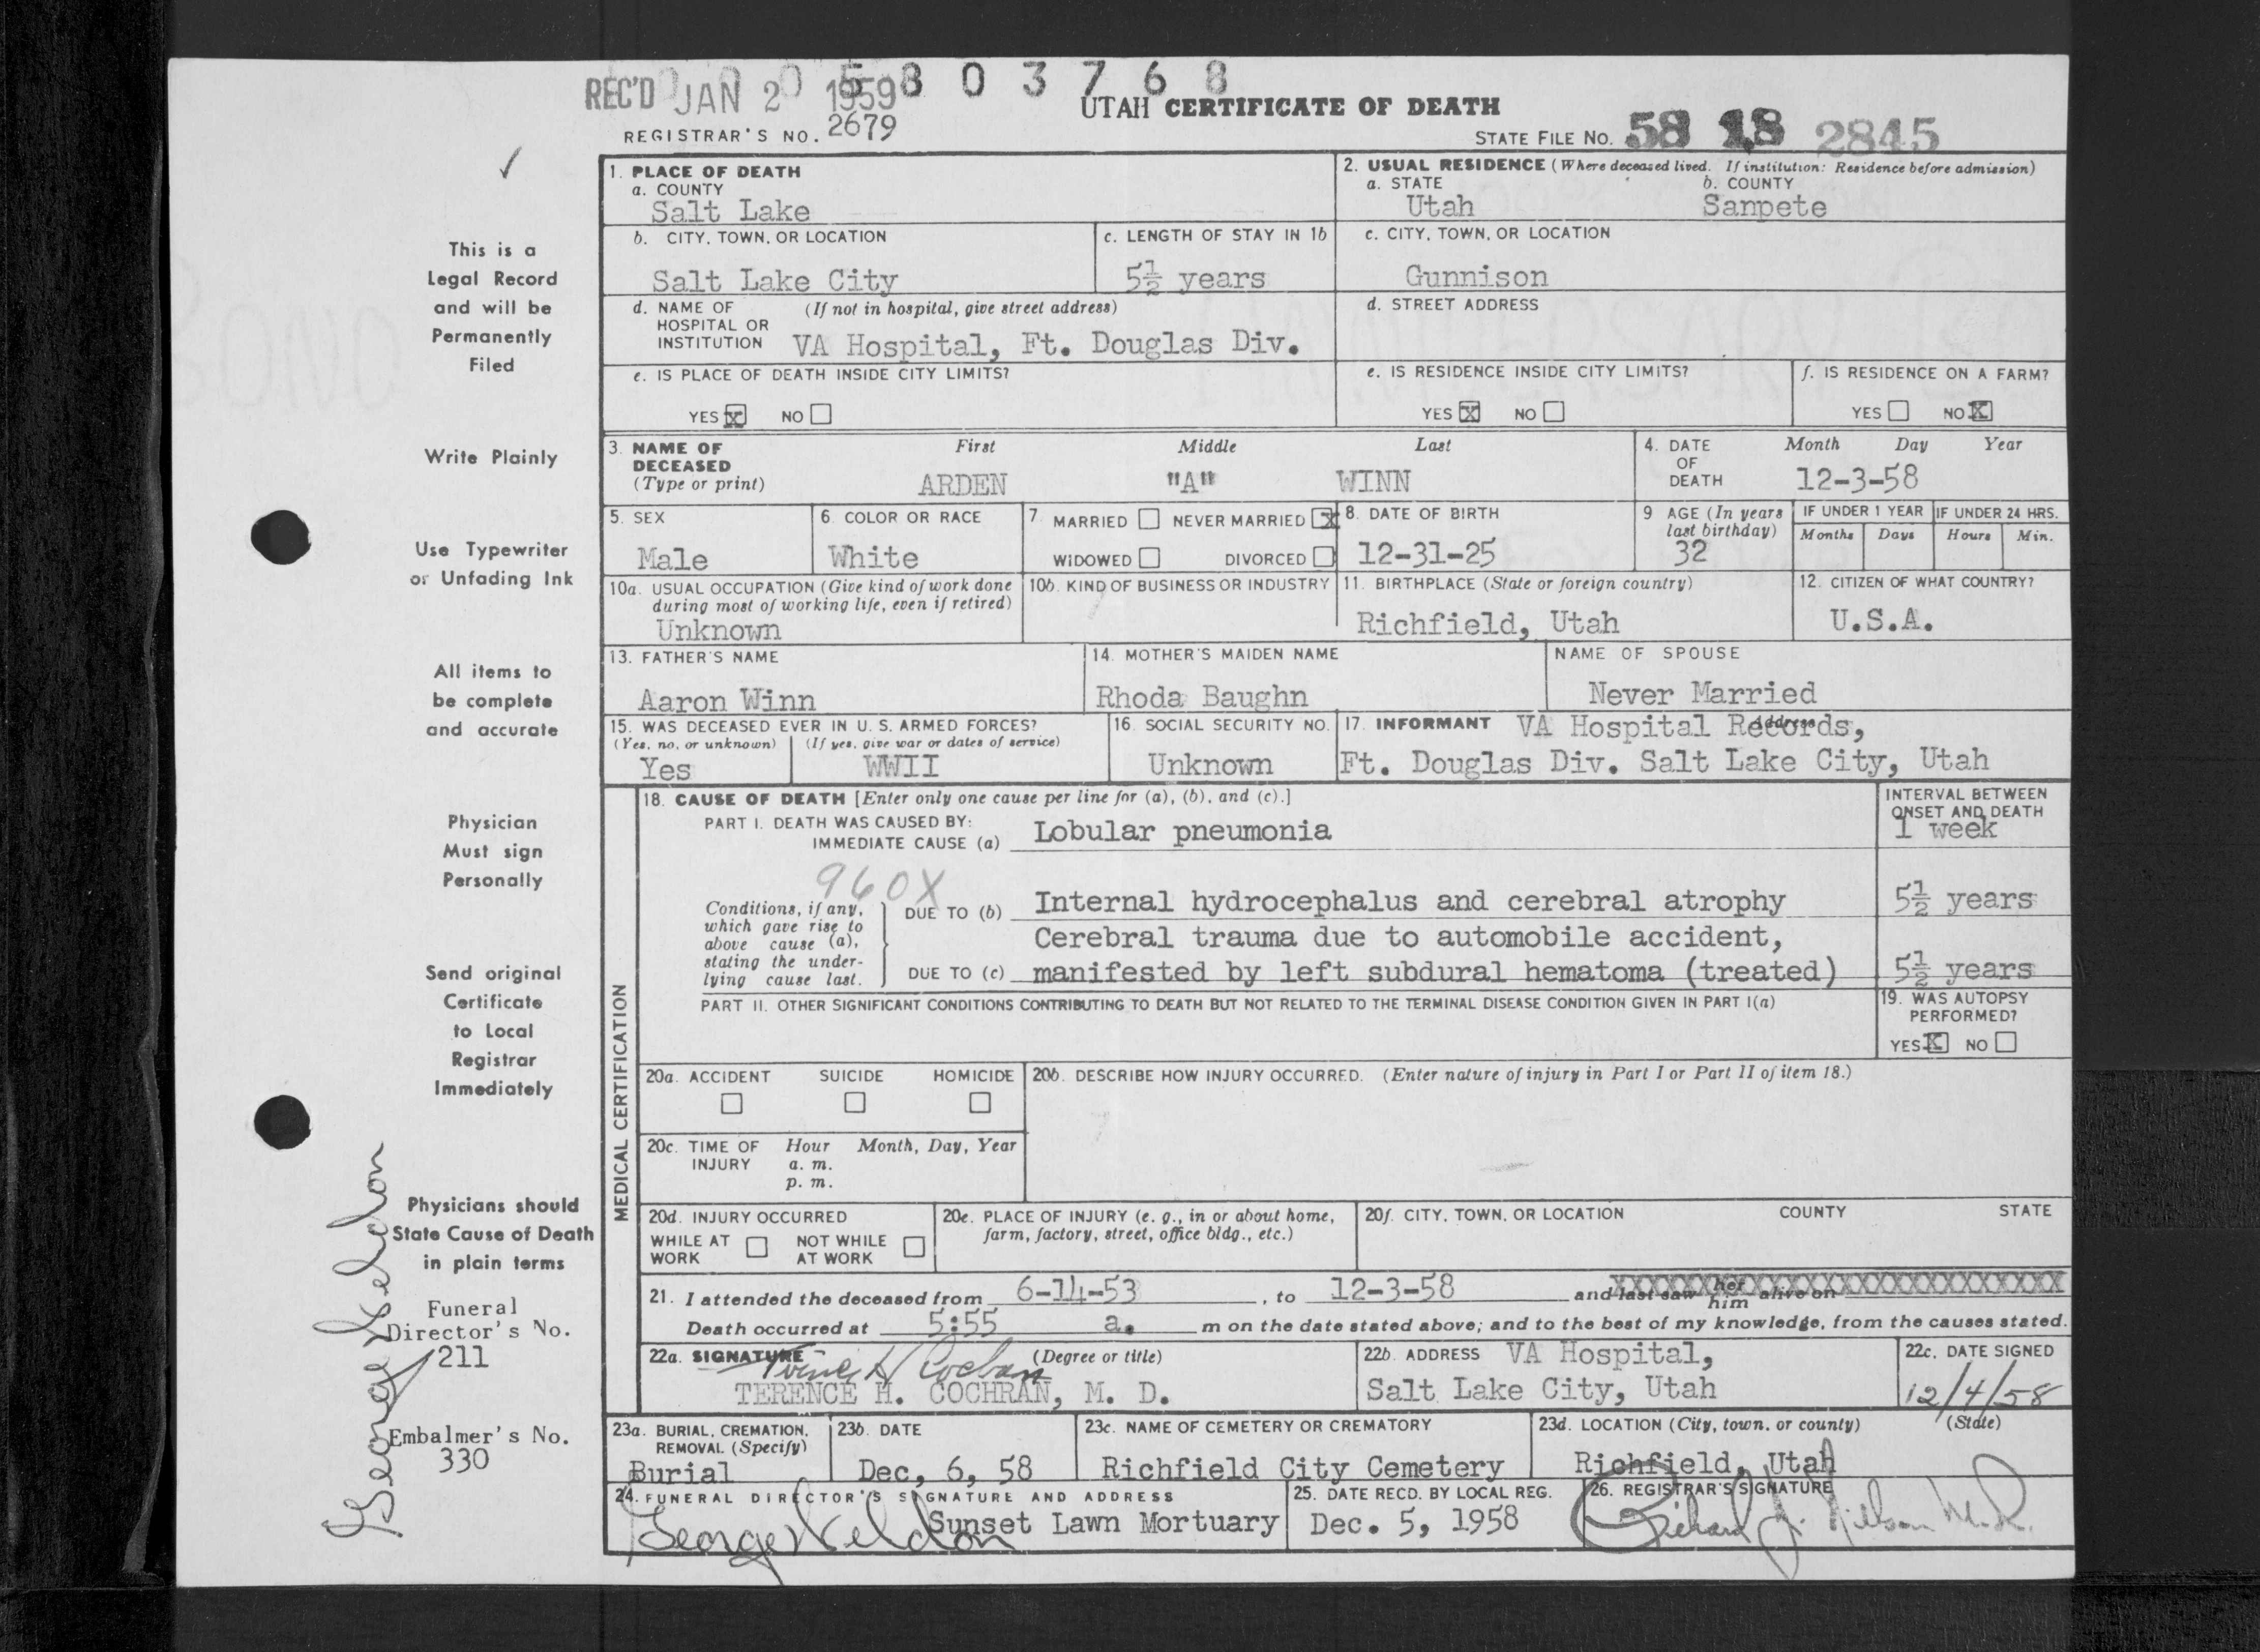 REC'D JAN 20 1959
5 8 0 3 7 6 8
UTAH CERTIFICATE OF DEATH
REGISTRAR'S NO. 2679
STATE FILE No. 58 18 2845
This is a
Legal Record
and will be
Permanently
Filed
Write Plainly
Use Typewriter
or Unfading Ink
All items to
be complete
and accurate
Physician
Must sign
Personally
Send original
Certificate
to Local
Registrar
Immediately
Physicians should
State Cause of Death
in plain terms
Funeral
Director's No.
211
Embalmer's No.
330
George Weldon
1. PLACE OF DEATH
a. COUNTY
Salt Lake
2. USUAL RESIDENCE (Where deceased lived. If institution: Residence before admission)
a. STATE b. COUNTY
Utah Sanpete
b. CITY, TOWN, OR LOCATION
Salt Lake City
c. LENGTH OF STAY IN 1b
5½ years
c. CITY, TOWN, OR LOCATION
Gunnison
d. NAME OF (If not in hospital, give street address)
HOSPITAL OR
INSTITUTION VA Hospital, Ft. Douglas Div.
d. STREET ADDRESS
e. IS PLACE OF DEATH INSIDE CITY LIMITS?
YES X NO
e. IS RESIDENCE INSIDE CITY LIMITS?
YES X NO
f. IS RESIDENCE ON A FARM?
YES NO X
3. NAME OF First Middle Last
DECEASED
(Type or print) ARDEN "A" WINN
4. DATE Month Day Year
OF
DEATH 12-3-58
5. SEX
Male
6. COLOR OR RACE
White
7. MARRIED NEVER MARRIED X
WIDOWED DIVORCED
8. DATE OF BIRTH
12-31-25
9 AGE (In years
last birthday)
32
IF UNDER 1 YEAR
Months Days
IF UNDER 24 HRS.
Hours Min.
10a. USUAL OCCUPATION (Give kind of work done
during most of working life, even if retired)
Unknown
10b. KIND OF BUSINESS OR INDUSTRY
11. BIRTHPLACE (State or foreign country)
Richfield, Utah
12. CITIZEN OF WHAT COUNTRY?
U.S.A.
13. FATHER'S NAME
Aaron Winn
14. MOTHER'S MAIDEN NAME
Rhoda Baughn
NAME OF SPOUSE
Never Married
15. WAS DECEASED EVER IN U. S. ARMED FORCES?
(Yes, no, or unknown) (If yes, give war or dates of service)
Yes WWII
16. SOCIAL SECURITY NO.
Unknown
17. INFORMANT Address
VA Hospital Records,
Ft. Douglas Div. Salt Lake City, Utah
MEDICAL CERTIFICATION
18. CAUSE OF DEATH [Enter only one cause per line for (a), (b), and (c).]
INTERVAL BETWEEN
ONSET AND DEATH
PART I. DEATH WAS CAUSED BY:
IMMEDIATE CAUSE (a) Lobular pneumonia 1 week
960X
Conditions, if any,
which gave rise to
above cause (a),
stating the under-
lying cause last.
DUE TO (b) Internal hydrocephalus and cerebral atrophy 5½ years
Cerebral trauma due to automobile accident,
DUE TO (c) manifested by left subdural hematoma (treated) 5½ years
PART II. OTHER SIGNIFICANT CONDITIONS CONTRIBUTING TO DEATH BUT NOT RELATED TO THE TERMINAL DISEASE CONDITION GIVEN IN PART I(a)
19. WAS AUTOPSY
PERFORMED?
YES X NO
20a. ACCIDENT SUICIDE HOMICIDE
20b. DESCRIBE HOW INJURY OCCURRED. (Enter nature of injury in Part I or Part II of item 18.)
20c. TIME OF Hour Month, Day, Year
INJURY a. m.
p. m.
20d. INJURY OCCURRED
WHILE AT NOT WHILE
WORK AT WORK
20e. PLACE OF INJURY (e. g., in or about home,
farm, factory, street, office bldg., etc.)
20f. CITY, TOWN, OR LOCATION COUNTY STATE
21. I attended the deceased from 6-14-53, to 12-3-58 and last saw her him alive on XXXXXXXXXXXXXXXXXX
Death occurred at 5:55 a. m on the date stated above; and to the best of my knowledge, from the causes stated.
22a. SIGNATURE (Degree or title)
Terence H Cochran
TERENCE H. COCHRAN, M. D.
22b. ADDRESS VA Hospital,
Salt Lake City, Utah
22c. DATE SIGNED
12/4/58
23a. BURIAL, CREMATION,
REMOVAL (Specify)
Burial
23b. DATE
Dec, 6, 58
23c. NAME OF CEMETERY OR CREMATORY
Richfield City Cemetery
23d. LOCATION (City, town, or county) (State)
Richfield, Utah
24. FUNERAL DIRECTOR'S SIGNATURE AND ADDRESS
George Weldon Sunset Lawn Mortuary
25. DATE RECD. BY LOCAL REG.
Dec. 5, 1958
26. REGISTRAR'S SIGNATURE
Richard J. Nilson M.D.